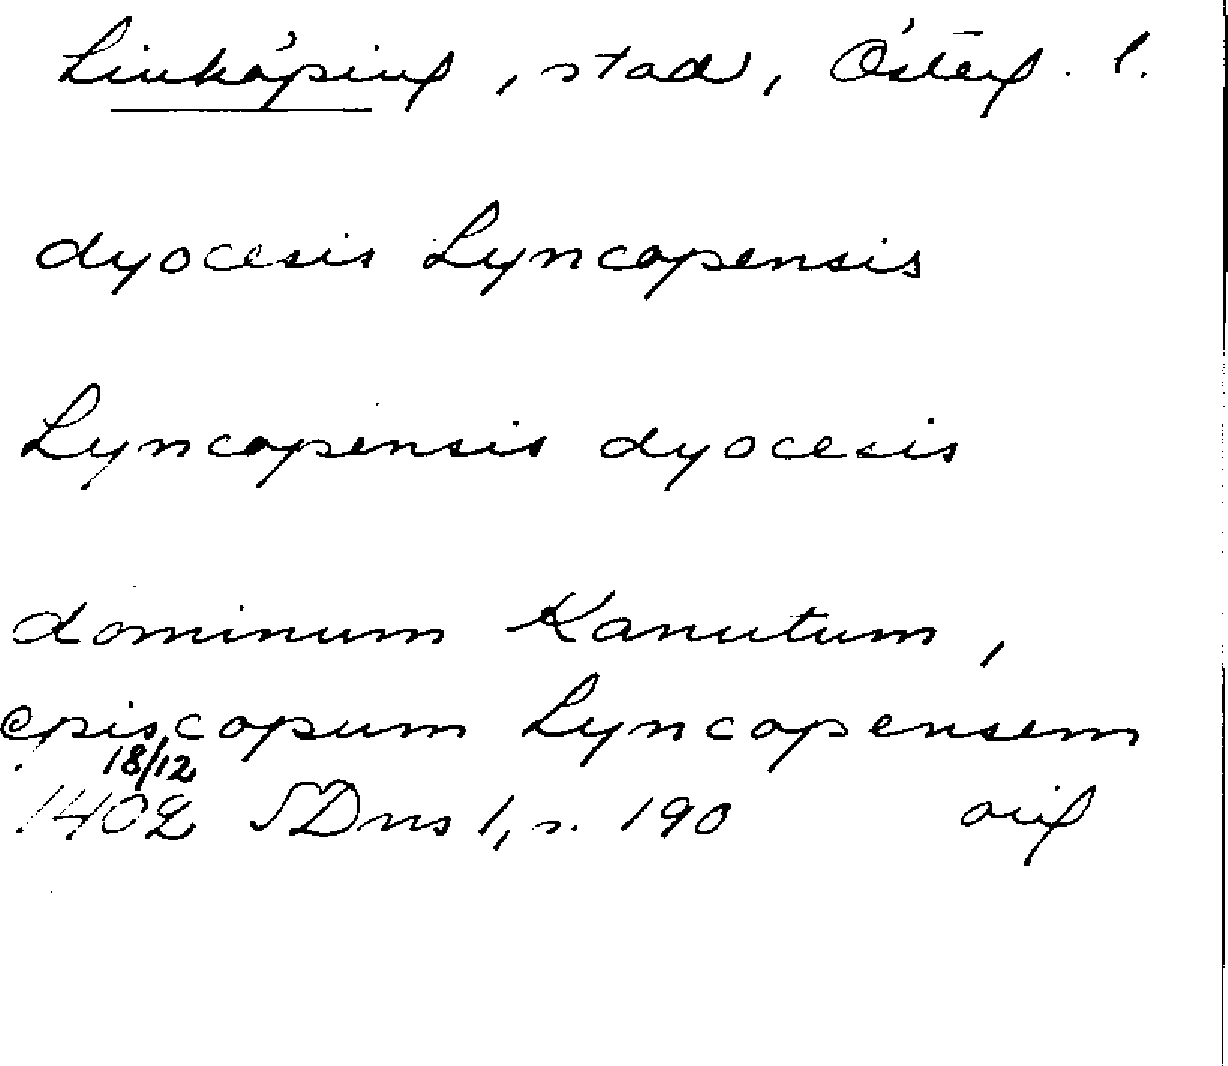 Linköping, stad, Österg. l.
dyocesis Lyncopensis
Lyncopensis dyocesis
dominum Kanutum,
episcopum Lyncopensem
18/12
1402 SDns 1, s. 190 orig